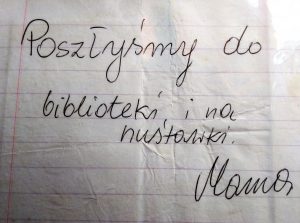 Poszłyśmy do
biblioteki, i na
huśtawki.
Mama